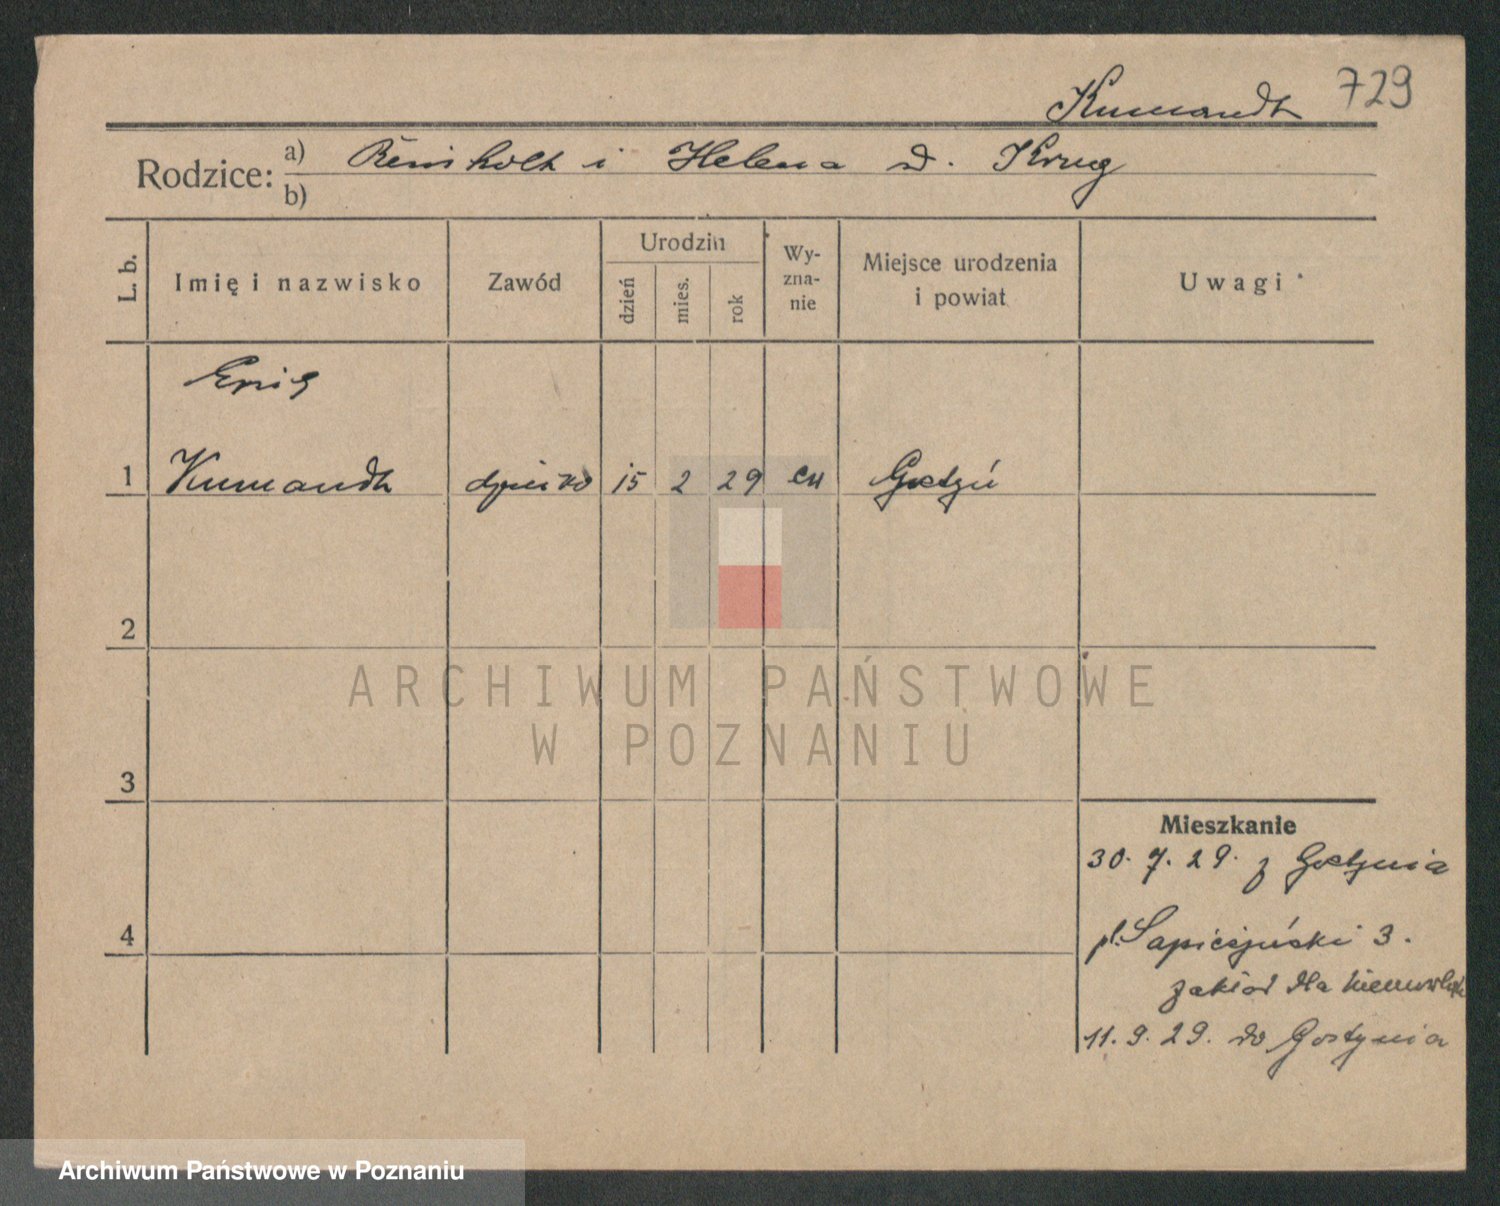 Kumandt 729
Rodzice: a) Reinholt i Helena d. Krug
b)
L. b.
Imię i nazwisko
Zawód
Urodzin
dzień
mies.
rok
Wy-
zna-
nie
Miejsce urodzenia
i powiat
Uwagi
Eric
1 Kumandt dziecko 15 2 29 ew Gostyń
2
3
4
Mieszkanie
30. 7. 29. z Gostynia
pl. Sapieżyński 3.
zakład dla niemowląt
11. 9. 29. do Gostynia
ARCHIWUM PAŃSTWOWE
W POZNANIU
Archiwum Państwowe w Poznaniu